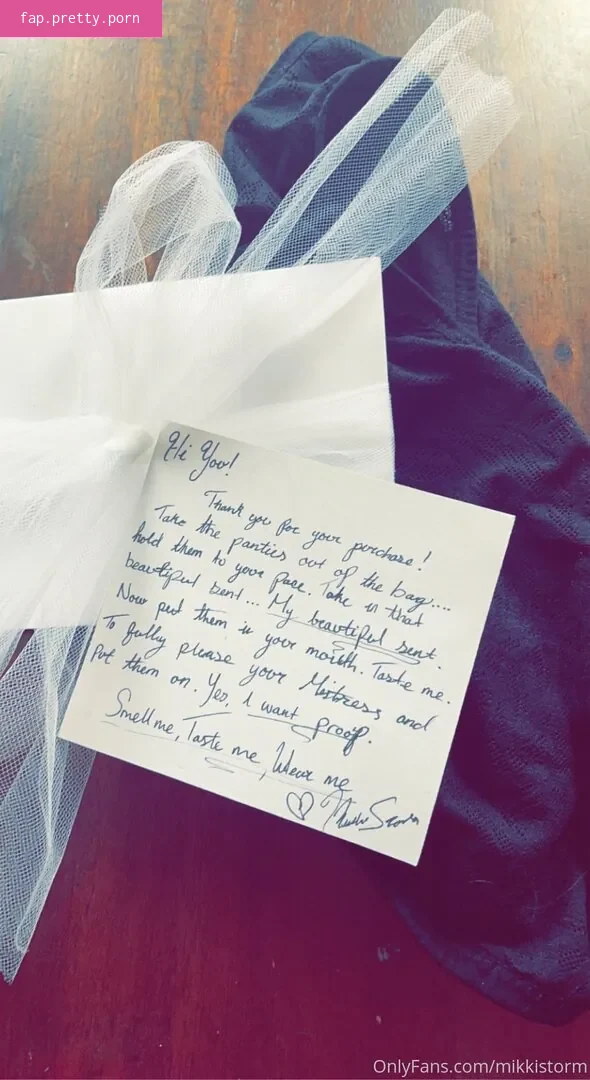 fap.pretty.porn
Hi You!
Thank you for your purchase!
Take the panties out of the bag....
hold them to your face. Take in that
beautiful sent... My beautiful sent.
Now put them in your mouth. Taste me.
To fully please your Mistress and
Put them on. Yes, I want proof.
Smell me, Taste me, Wear me
OnlyFans.com/mikkistorm